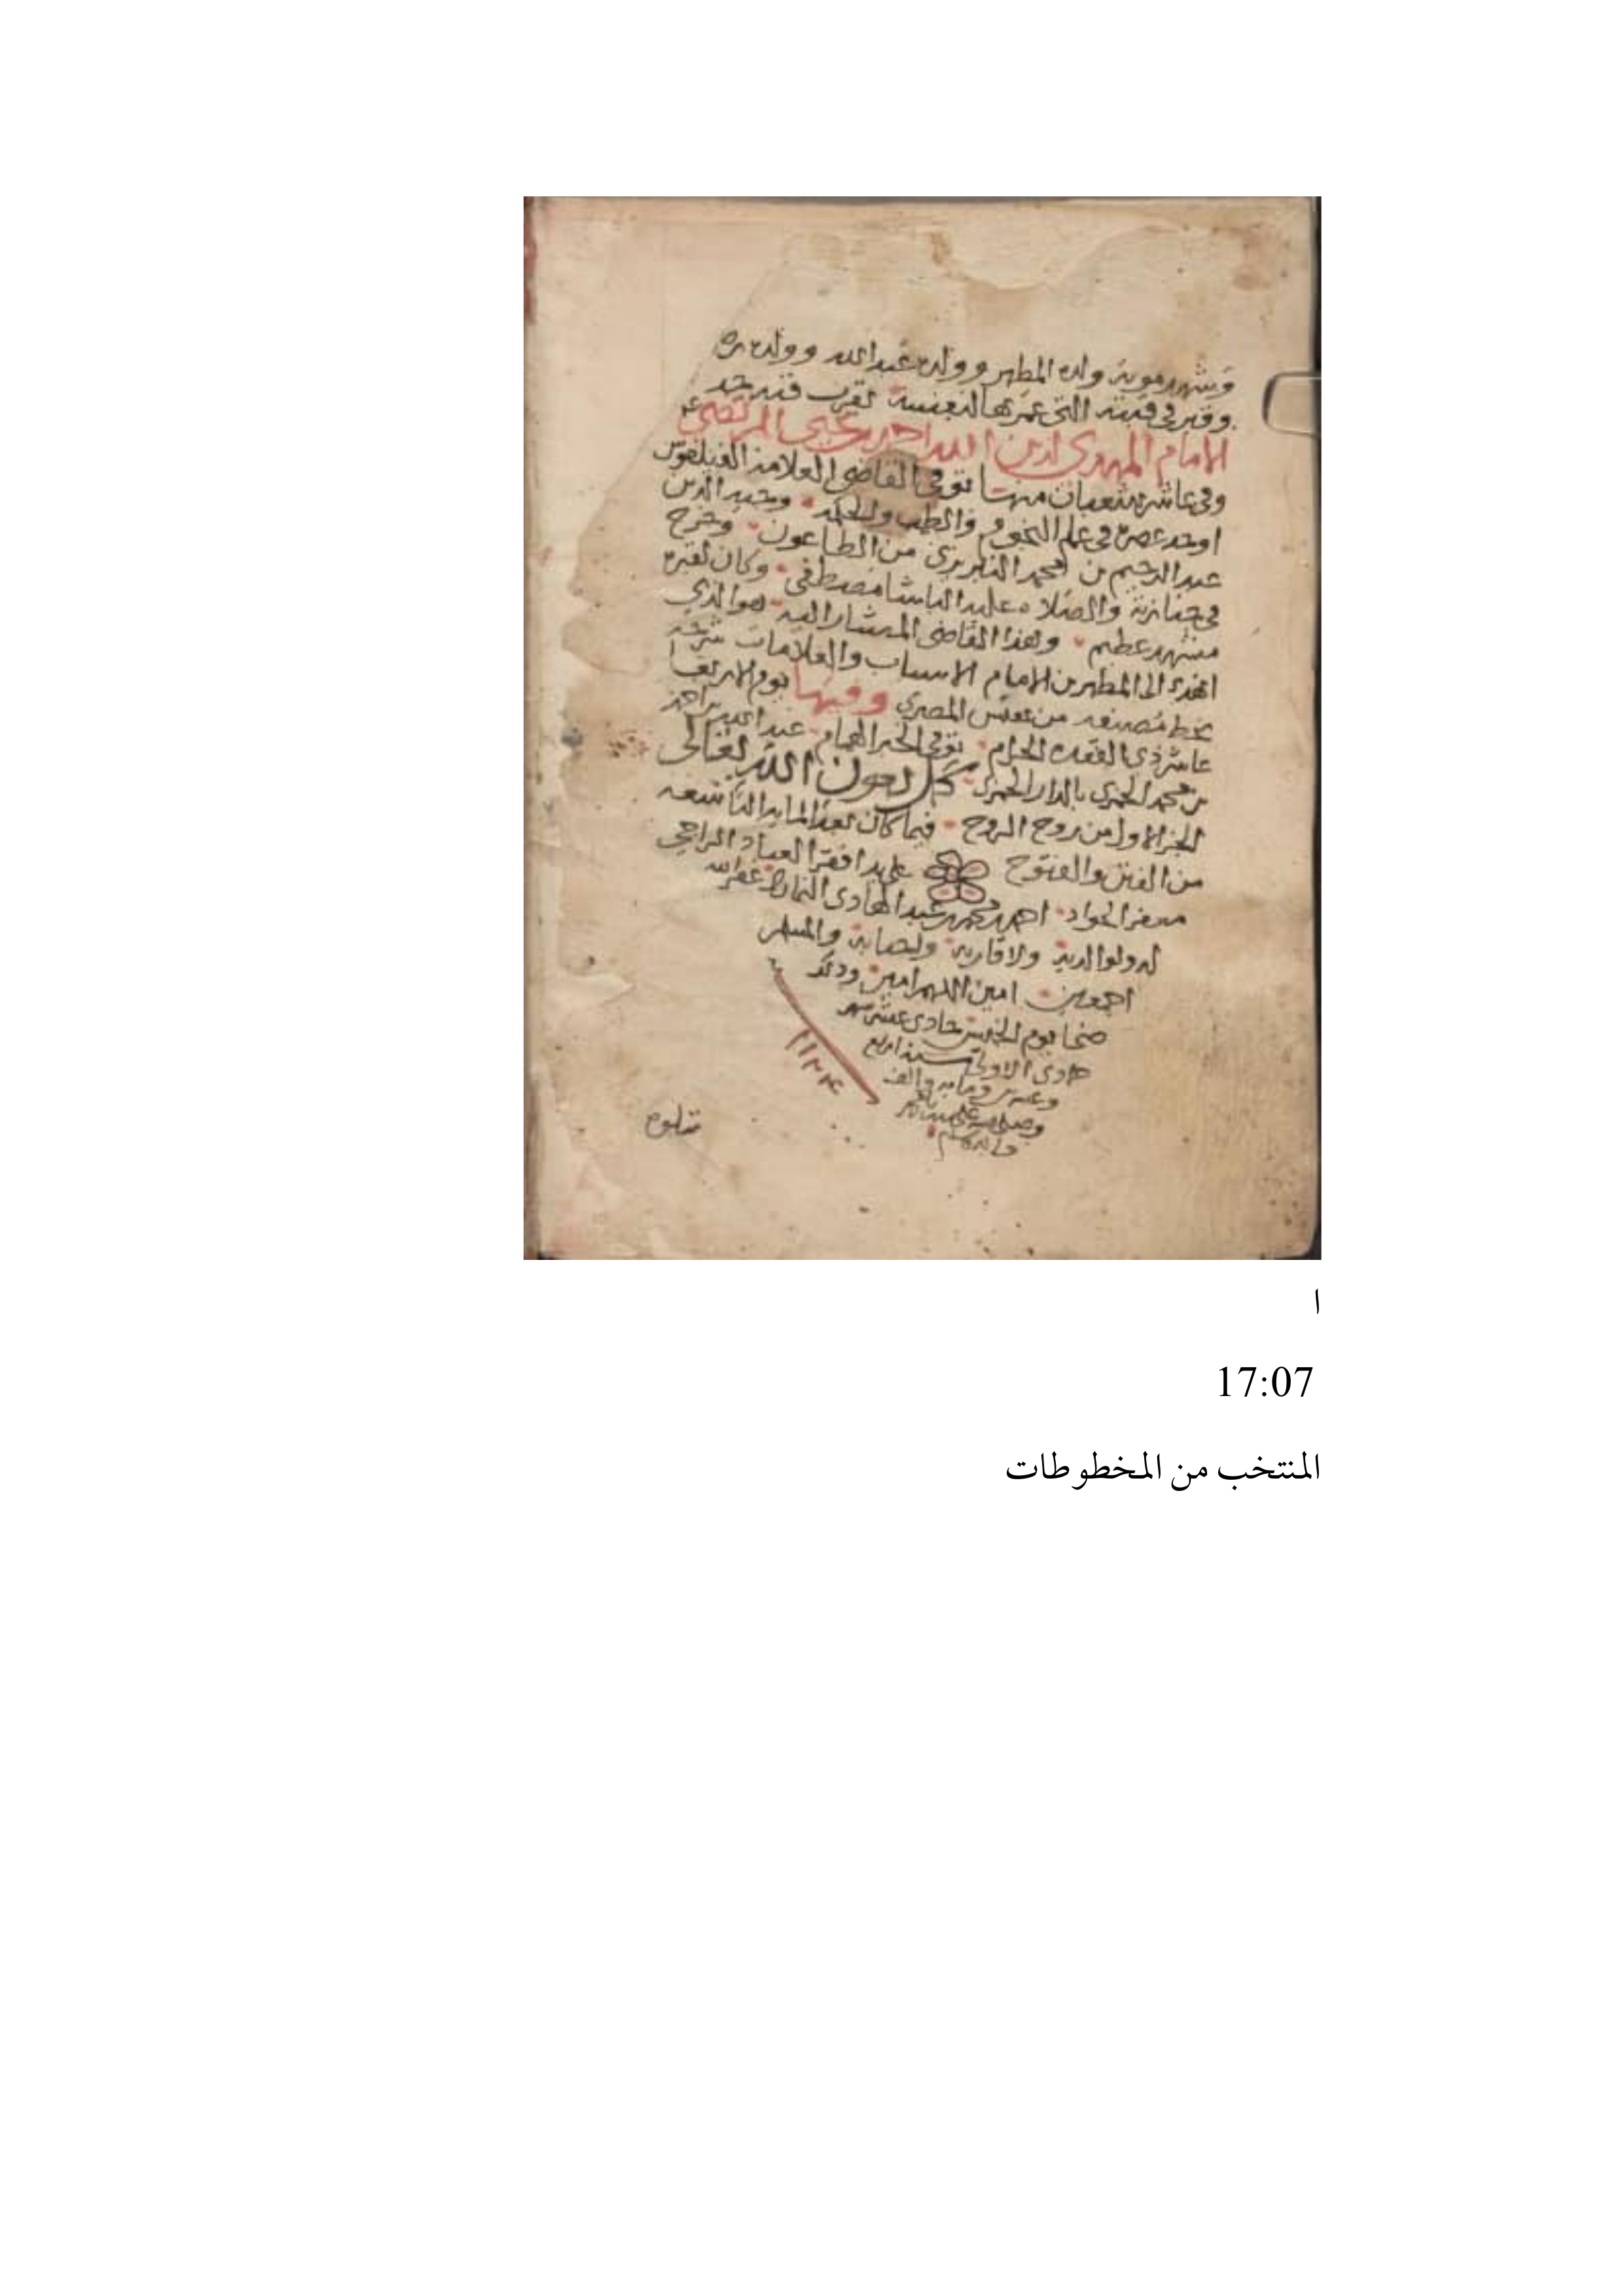 وشهد موته ولده المطهر وولده عبد الله وولده
وقبر في قبته التي عمرها لنفسه بقرب قبة جده
الامام المهدي لدين الله احمد بن يحيى المرتضى
وفي عاشر شعبان منها توفي القاضي العلامة الفيلسوف
اوحد عصره في علم النجوم والطب والحكمة وحيد الدين
عبد الرحيم بن محمد من الطاعون وخرج
في جنازته والصلاة عليه الباشا مصطفى وكان لقبره
مشهد عظيم وهذا القاضي المشار اليه هو الذي
اهدى الى المطهر بن الامام الاسباب والعلامات شرحه
بخط مصنفه من المصري وفيها يوم الاربعا
عاشر ذي القعدة الحرام توفي الحبر الهمام عبد الله بن احمد
بن محمد الحمزي بالدار الحمرا كمل بعون الله تعالى
الجز الاول من روح الروح فيما كان بعد المايه التاسعه
من الفتن والفتوح علي يد افقر العباد الراجي
مغفرة الجواد احمد محمد عبد الهادي غفر الله
له ولوالديه ولاقاربه والمسلمين
اجمعين امين اللهم امين وذلك
ضحا يوم الخميس حادي عشر شهر
جمادى الاولى سنة اربع
وعشرين ومايه والف
وصلى الله على سيدنا محمد
واله وسلم
١١٢٤
تتلوه
ا
17:07
المنتخب من المخطوطات